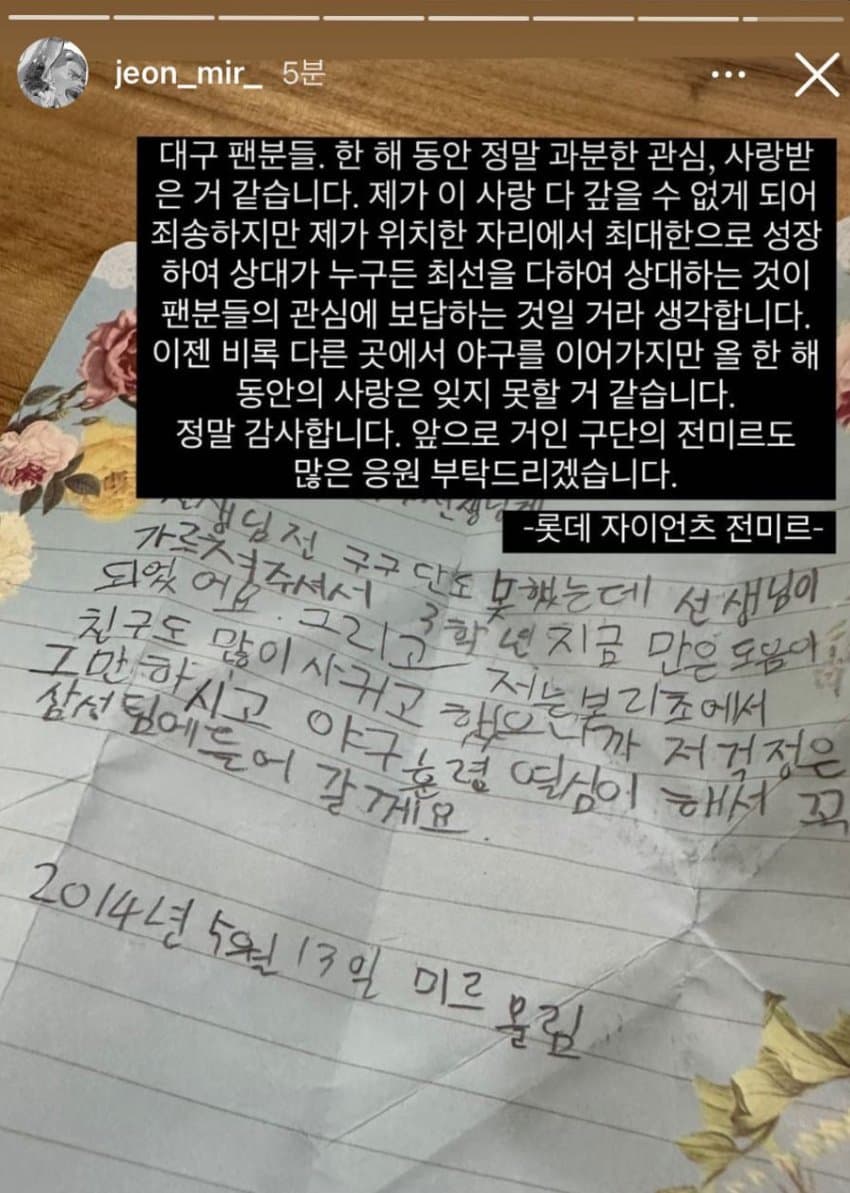 jeon_mir_ 5분
대구 팬분들. 한 해 동안 정말 과분한 관심, 사랑받
은 거 같습니다. 제가 이 사랑 다 갚을 수 없게 되어
죄송하지만 제가 위치한 자리에서 최대한으로 성장
하여 상대가 누구든 최선을 다하여 상대하는 것이
팬분들의 관심에 보답하는 것일 거라 생각합니다.
이젠 비록 다른 곳에서 야구를 이어가지만 올 한 해
동안의 사랑은 잊지 못할 거 같습니다.
정말 감사합니다. 앞으로 거인 구단의 전미르도
많은 응원 부탁드리겠습니다.
-롯데 자이언츠 전미르-
선생님전 구구단도 못했는데 선생님이
가르쳐주셔서 3학년지금 만은 도움이
되었어요. 그리고 저는본리초에서
친구도 많이 사귀고 했으니까 저 걱정은
그만하시고 야구훈령 열심이 해서 꼭
삼성팀에들어 갈께요.
2014년 5월 13일 미르 올림